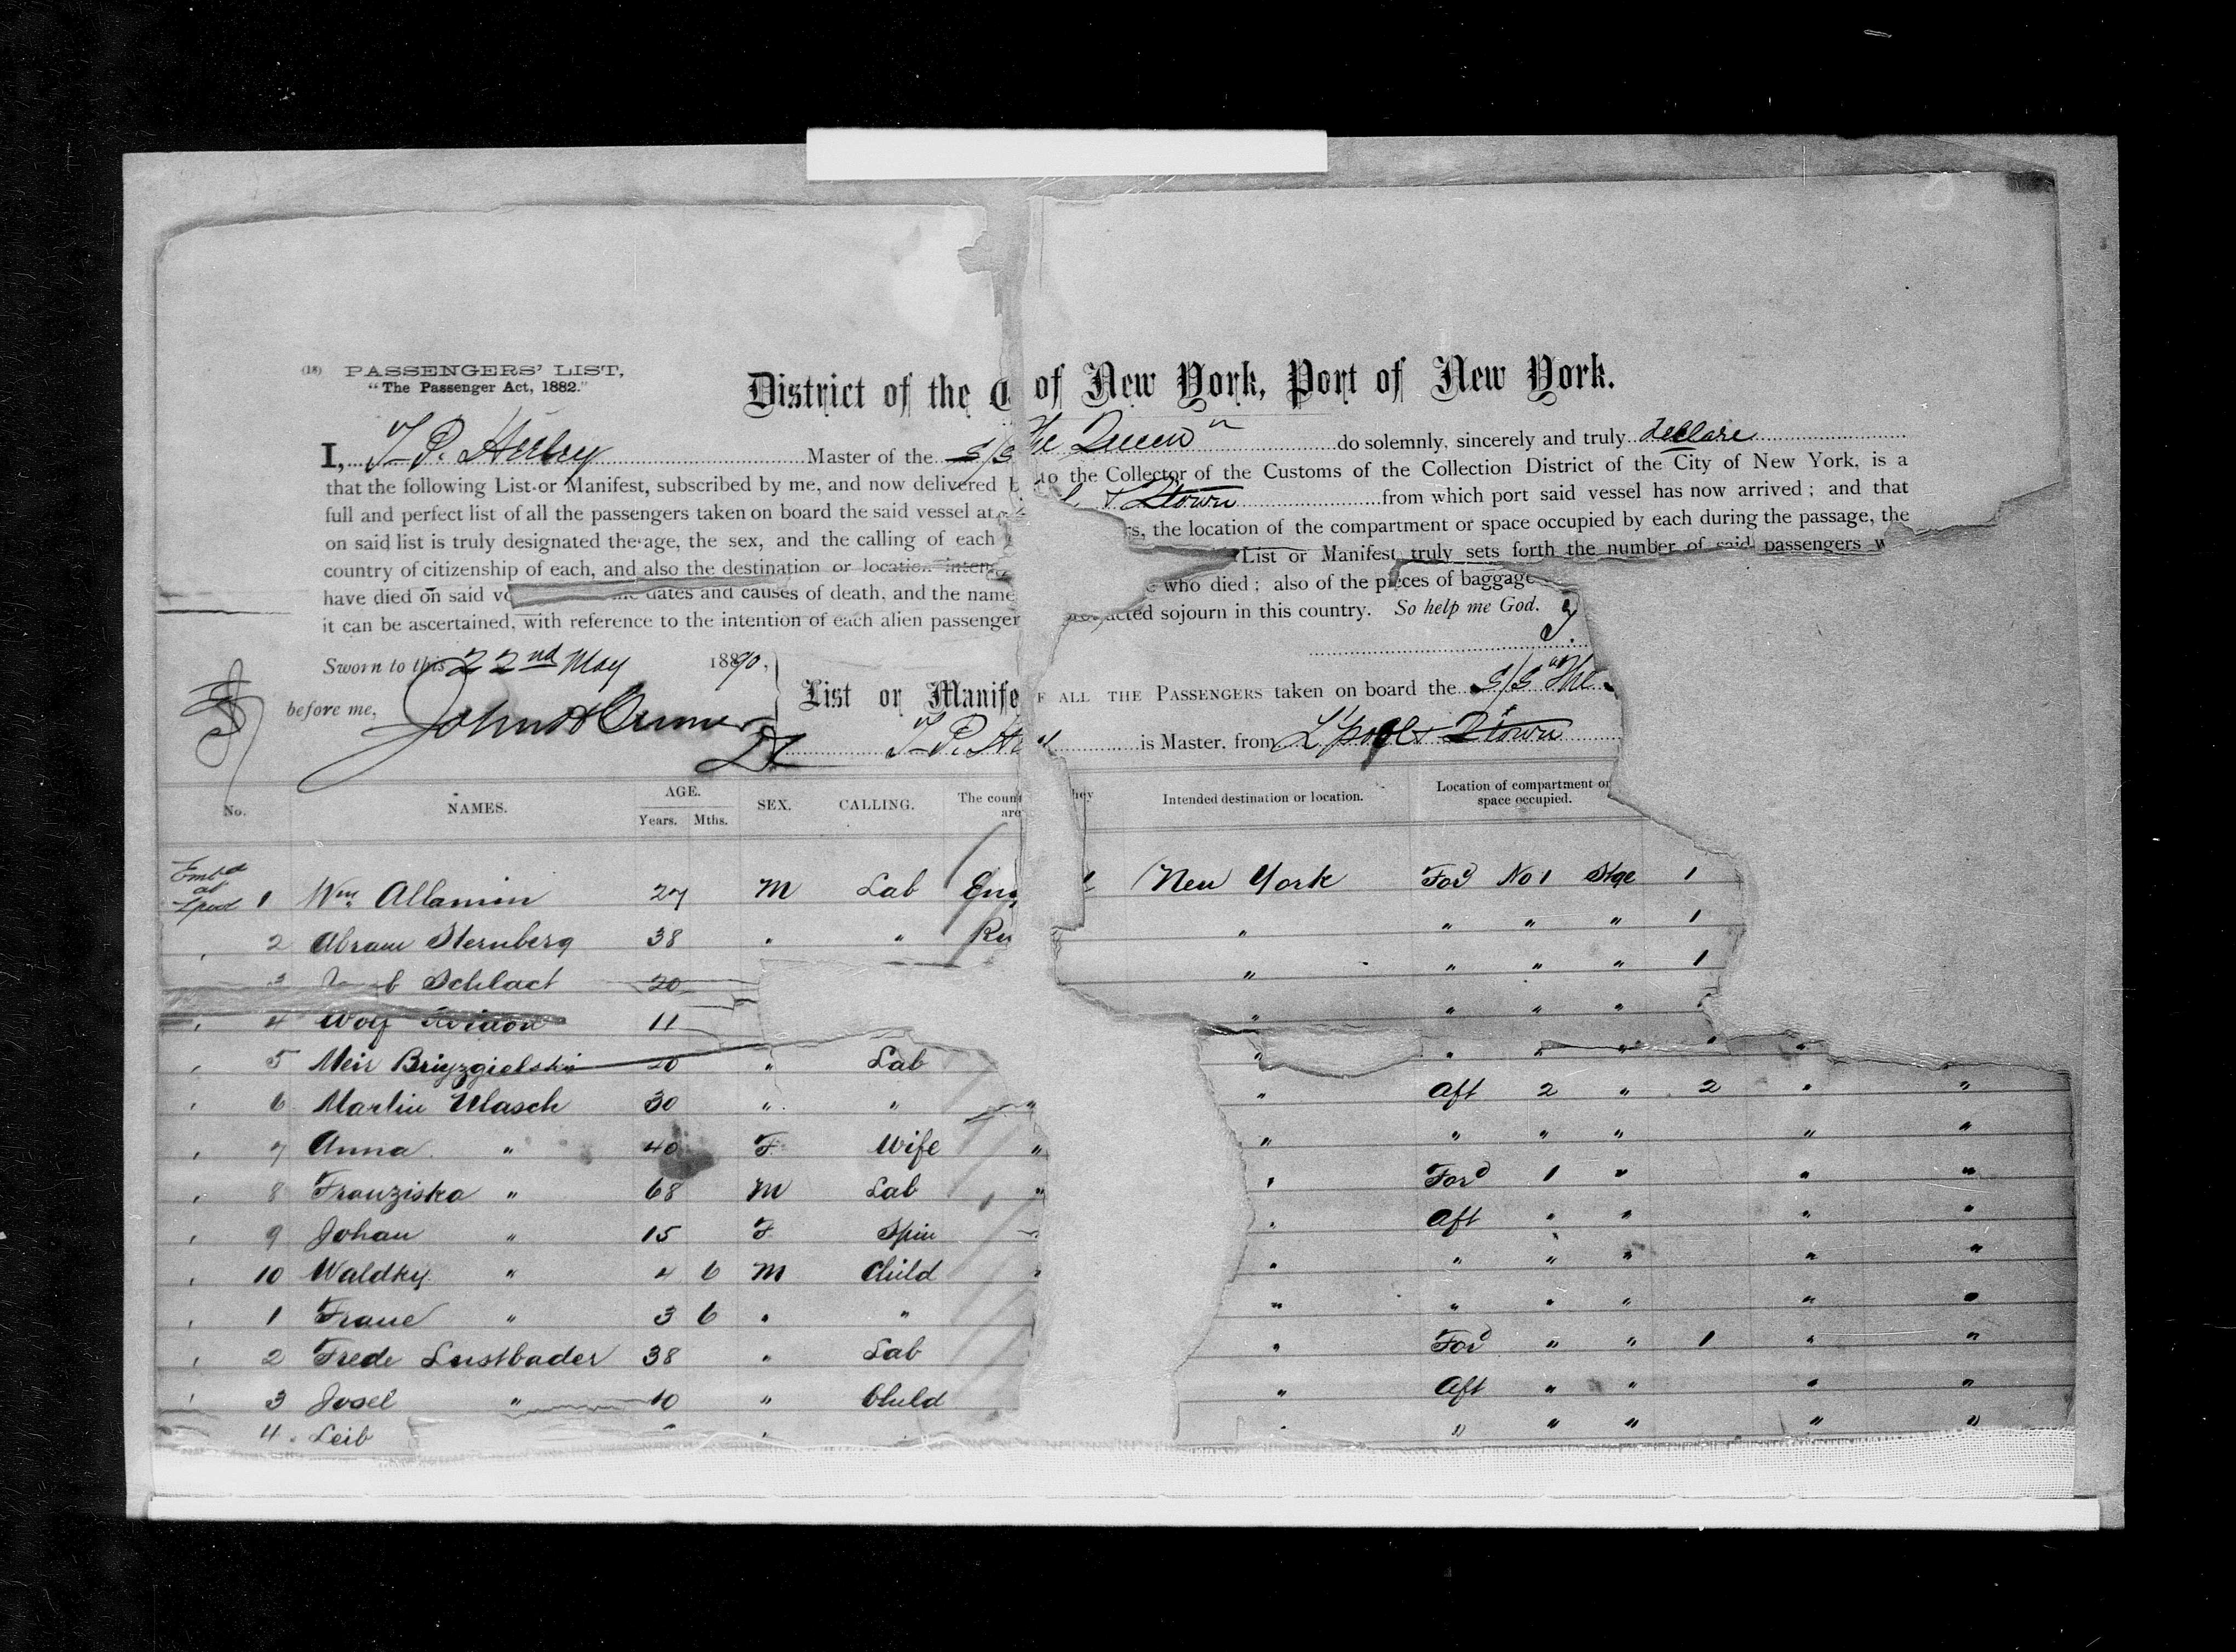 (18) PASSENGERS' LIST,
"The Passenger Act, 1882."
District of the C of New York, Port of New York.
I, T P. Heeley Master of the S/S The Queen" do solemnly, sincerely and truly declare
that the following List or Manifest, subscribed by me, and now delivered to the Collector of the Customs of the Collection District of the City of New York, is a
full and perfect list of all the passengers taken on board the said vessel at & Qtown from which port said vessel has now arrived; and that
on said list is truly designated the age, the sex, and the calling of each s, the location of the compartment or space occupied by each during the passage, the
country of citizenship of each, and also the destination or location inten List or Manifest truly sets forth the number of said passengers w
have died on said vo dates and causes of death, and the name who died; also of the pieces of baggage
it can be ascertained, with reference to the intention of each alien passenger acted sojourn in this country. So help me God.
Sworn to this 22nd May 1890,
before me,
List or Manife F ALL THE PASSENGERS taken on board the S/S "The
T P. He is Master, from L'pool & Qtown
No. NAMES. AGE. Years. Mths. SEX. CALLING. The count are hey Intended destination or location. Location of compartment or space occupied.
Embd at Lpool 1 Wm Allamin 27 M Lab Eng New York Ford No 1 Stge 1
2 Abram Sternberg 38 " " Ru " " " " 1
3 Schlact 20 " " " " 1
4 Wolf 11 " " " "
5 Meir Bryzgielski 20 " Lab " " " "
6 Martin Ulasch 30 " " " " Aft 2 " 2 " "
7 Anna " 40 F Wife " " " " " " "
8 Franziska " 68 M Lab " " Ford 1 " " "
9 Johan " 15 F Spin " Aft " " " "
10 Waldky " 4 6 M Child " " " " " " "
1 Frane " 3 6 " " " " " " " "
2 Frede Lustbader 38 " Lab " Ford " " 1 " "
3 Josel " 10 " Child " Aft " " " "
4 Leib " " " " " " "